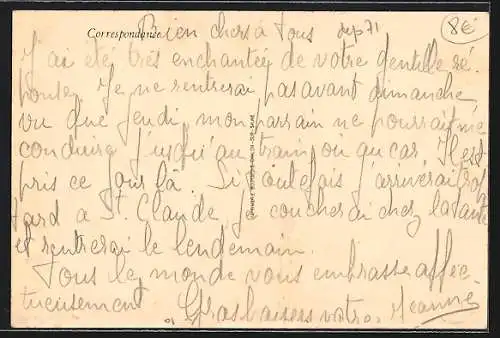 Correspondance
Bien chers à tous
dep 71
8€
J'ai été très enchantée de votre gentille ré.
ponse. Je ne rentrerai pas avant dimanche
vu que jeudi mon parrain ne pourrait me
conduire jusqu'au train ou au car. Il est
pris ce jour là. Si toutefois j'arriverai trop
tard à St. Claude je coucherai chez la tante
et rentrerai le lendemain.
Tous le monde vous embrasse affec-
tueusement. Gros baisers votre Jeanne